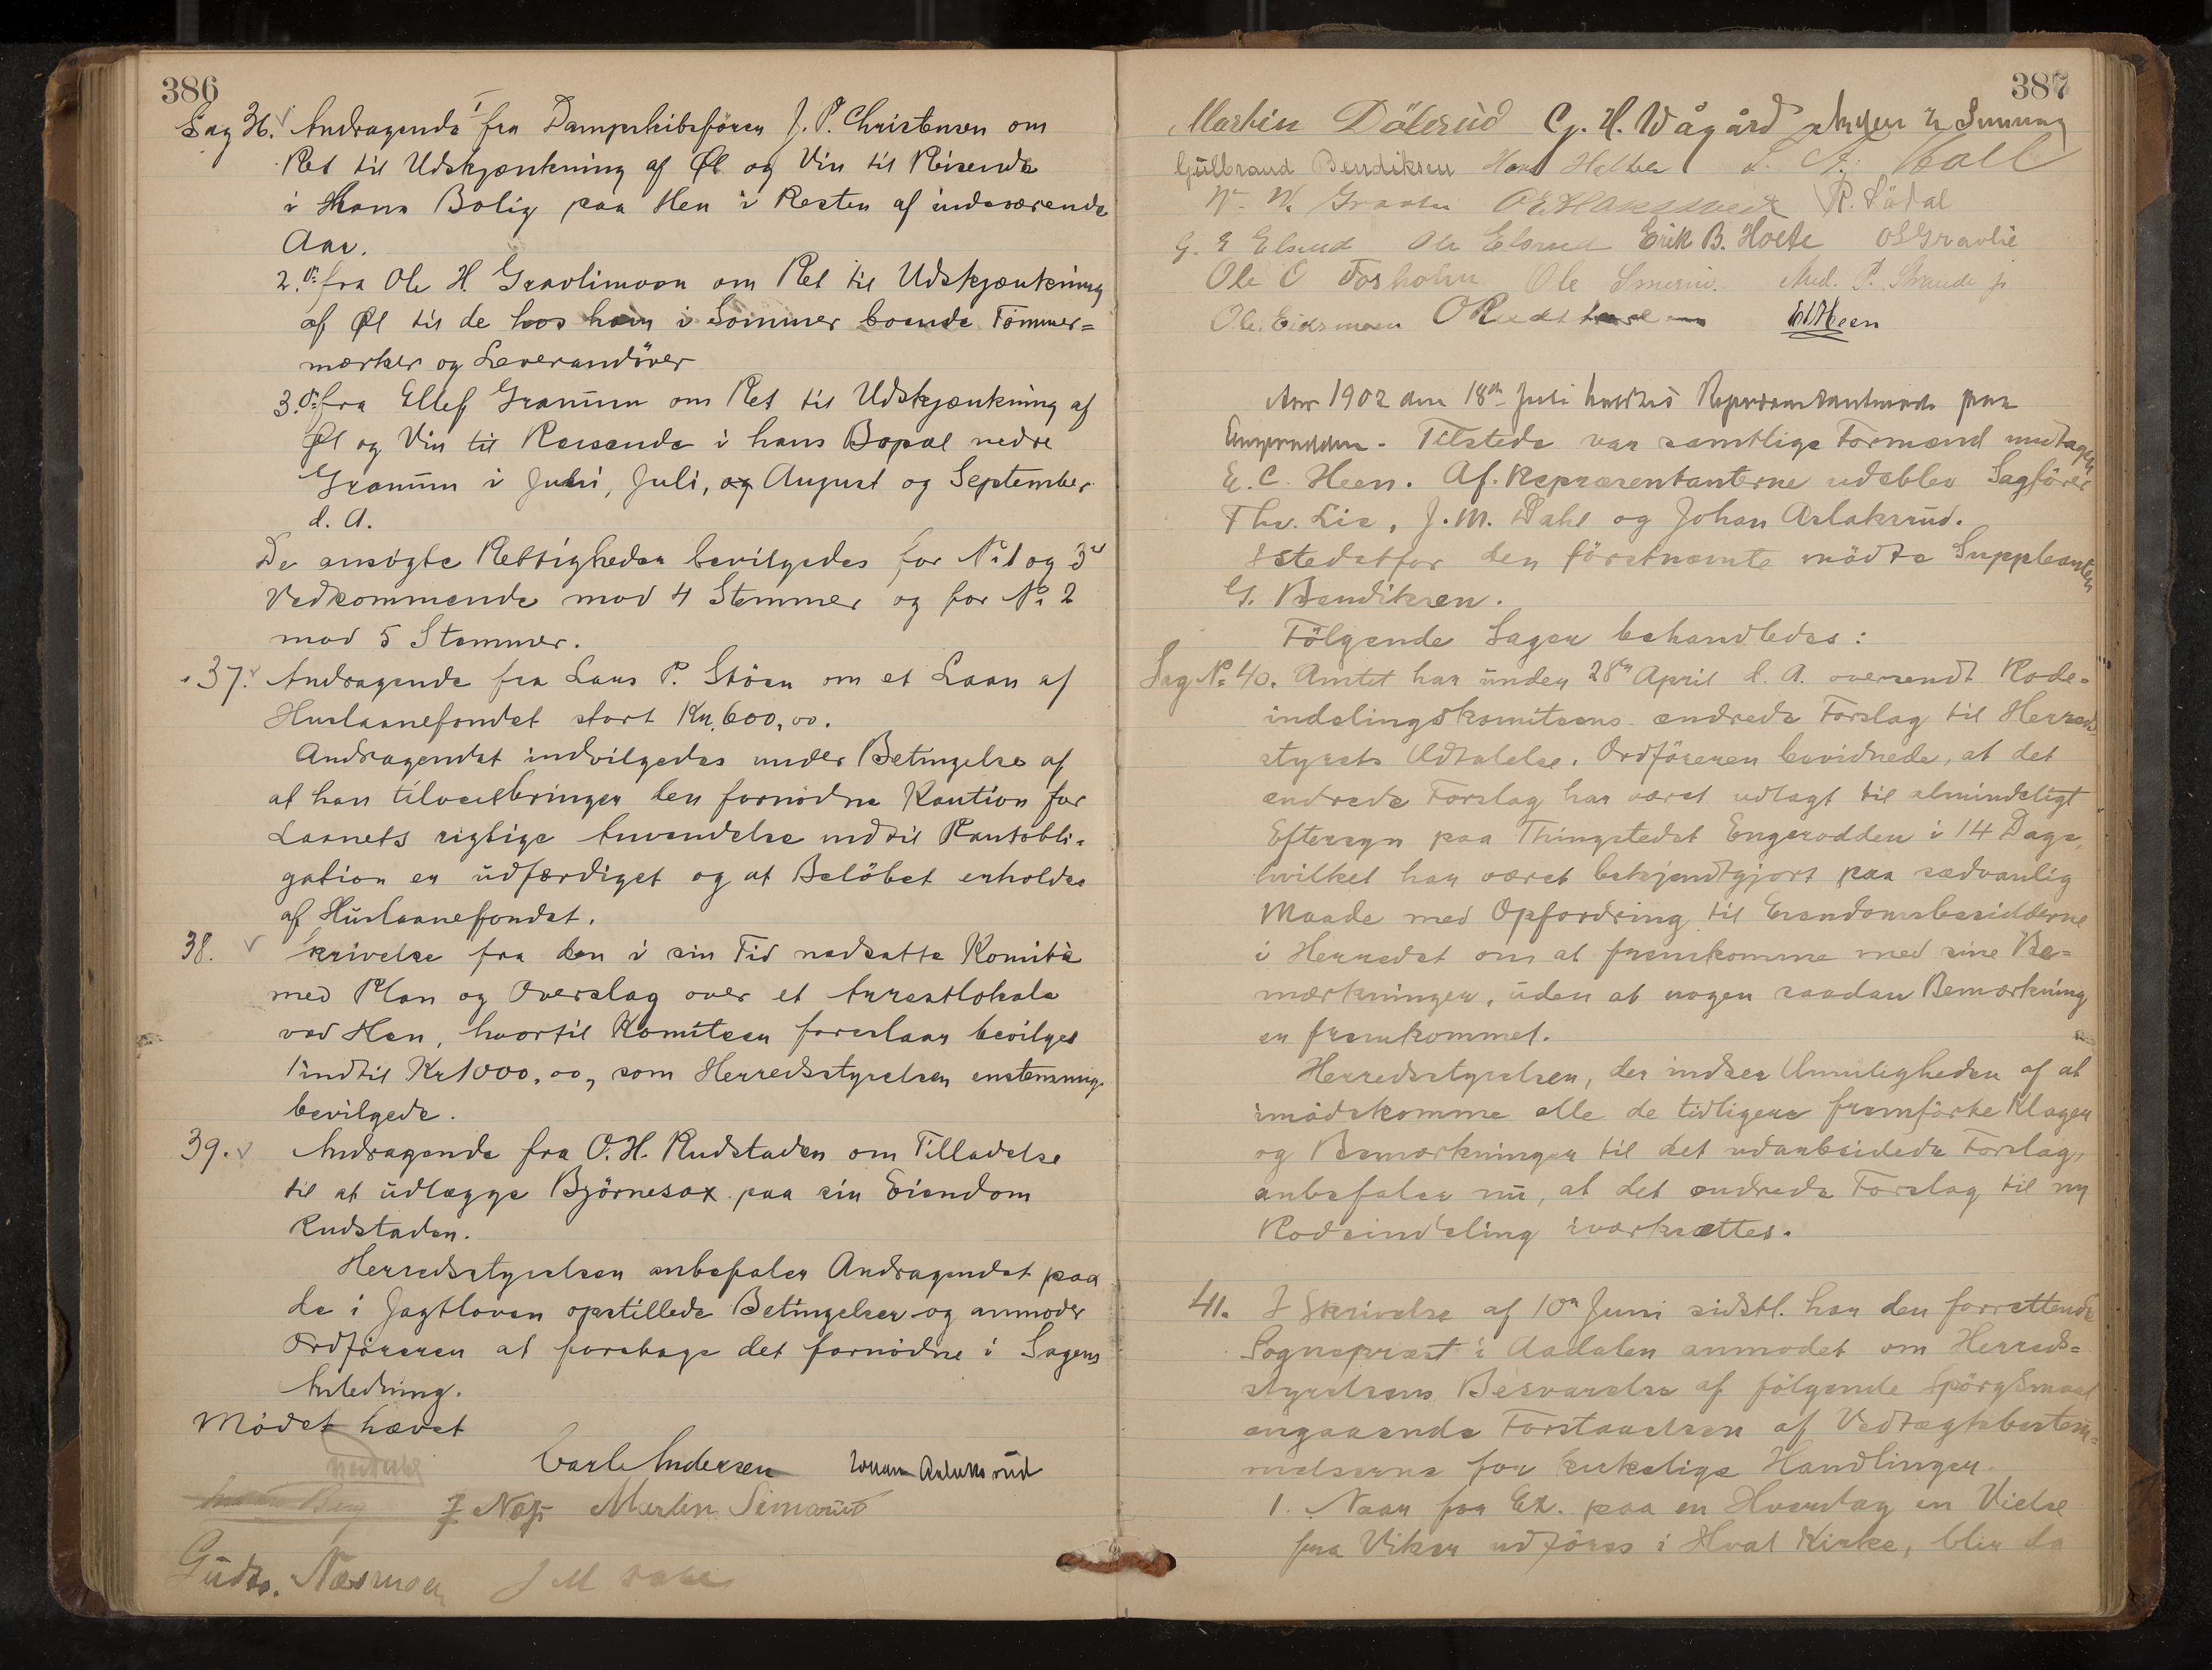 386
Sag 36. 1 Andragende fra Dampskibsfører J. P. Christensen om
Ret til Udskjænkning af Øl og Vin til Reisende
i Hans Bolig paa Hen i Resten af indeværende
Aar.
2. Do fra Ole H. Gravlimoen om Ret til Udskjænkning
af Øl til de hos ham i Sommer boende Tømmer=
mærker og Leverandöver
3. Do fra Ellef Granum om Ret til Udskjænkning af
Øl og Vin til Reisende i hans Bopæl nedre
Granum i Juni, Juli, og August og September
d. A.
De ansøgte Rettigheder bevilgedes for No 1 og 3s
Vedkommende mod 4 Stemmer og for No 2
mod 5 Stemmer.
37. Andragende fra Lars P. Stöen om et Laan af
Huslaanefondet stort Kr. 600,00.
Andragendet indvilgedes under Betingelse af
at han tilveiebringer den fornødne Kaution for
Laanets rigtige Anvendelse indtil Pantobli=
gation er udfærdiget og at Beløbet erholdes
af Huslaanefondet.
38. Skrivelse fra den i sin Tid nedsatte Komite
med Plan og Overslag over et Arrestlokale
ved Hen, hvortil Komiteen foreslaar bevilget
indtil Kr 1000,00, som Herredsstyrelsen enstemmig
bevilgede.
39. Andragende fra O. H. Rudstaden om Tilladelse
til at udlægge Björnesax paa sin Eiendom
Rudstaden.
Herredsstyrelsen anbefaler Andragendet paa
de i Jagtloven opstillede Betingelser og anmoder
Ordføreren at foretage det fornødne i Sagens
Anledning.
Mödet hævet
Carl Andersen Johan Aslaksrud
Berg J Næs Martin Simarud
Gudbr. Næsmoen J M Dahl
387
Martin Dölerud G. H. Vågård
Gulbrand Bendiksen Hans Kall
Gravlie P. Södal
G. E Elsrud Ole Elsrud Erik B. Holte O S Gravlie
Ole O Forholm Ole And. P. Strande jr
Ole Eidsmoen O Rudstaden E C Heen
Aar 1902 den 18de Juli holdtes Repræsentantmøde paa
Engerodden. Tilstede var samtlige Formænd undtagen
E. C. Heen. Af Repræsentanterne udeblev Sagfører
Thv. Lie, J. M. Dahl og Johan Aslaksrud.
Istedetfor den förstnævnte mödte Suppleanten
G. Bendiksen.
Fölgende Sager behandledes:
Sag No 40. Amtet har under 28de April d. A. oversendt Rode=
indelingskomiteens ændrede Forslag til Herreds=
styrets Udtalelse. Ordföreren bevidnede, at det
ændrede Forslag har været udlagt til almindeligt
Eftersyn paa Thingstedet Engerodden i 14 Dage,
hvilket har været bekjendtgjort paa sædvanlig
Maade med Opfordring til Eiendomsbesidderne
i Herredet om at fremkomme med sine Be=
mærkninger, uden at nogen saadan Bemærkning
er fremkommet.
Herredsstyrelsen, der indser Umuligheden af at
imödekomme alle de tidligere fremförte Klager
og Bemærkninger til det udarbeidede Forslag,
anbefaler nu, at det ændrede Forslag til ny
Rodeindeling iværksættes.
41. I Skrivelse af 10de Juni sidstl. har den forrettende
Sogneprest i Aadalen anmodet om Herreds=
styrelsens Besvarelse af fölgende Spörgsmaal
angaaende Forstaaelsen af Vedtægtsbestem=
melserne for kirkelige Handlinger.
1. Naar for Ex. paa en Hverdag en Vielse
fra Viker udföres i Hval Kirke, blir da